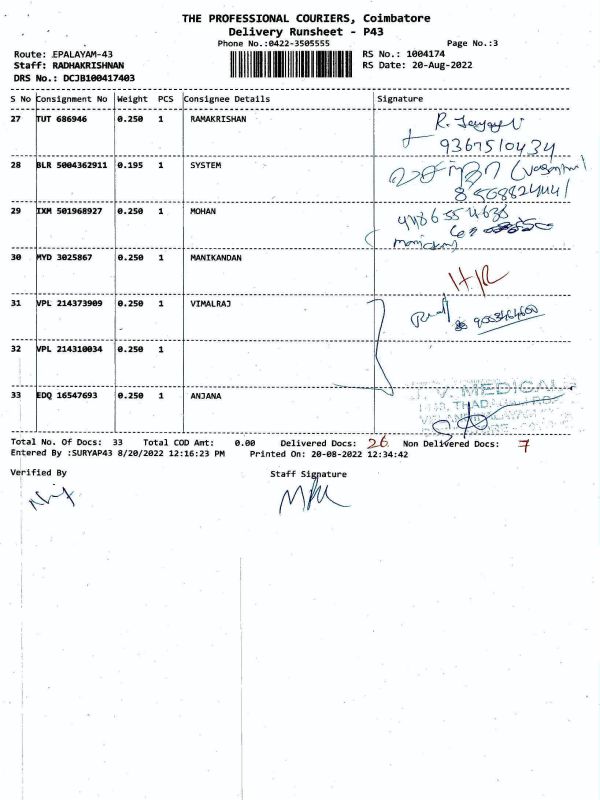 THE PROFESSIONAL COURIERS, Coimbatore
Delivery Runsheet - P43
Phone No.:0422-3505555 Page No.:3
Route: EPALAYAM-43 RS No.: 1004174
Staff: RADHAKRISHNAN RS Date: 20-Aug-2022
DRS No.: DCJB100417403
S No Consignment No Weight PCS Consignee Details Signature
27 TUT 686946 0.250 1 RAMAKRISHAN
9367510434
28 BLR 5004362911 0.195 1 SYSTEM
29 IXM 501968927 0.250 1 MOHAN
30 MYD 3025867 0.250 1 MANIKANDAN
31 VPL 214373909 0.250 1 VIMALRAJ
32 VPL 214310034 0.250 1
33 EDQ 16547693 0.250 1 ANJANA
J. V. MEDICALS
Total No. Of Docs: 33 Total COD Amt: 0.00 Delivered Docs: 26 Non Delivered Docs: 7
Entered By :SURYAP43 8/20/2022 12:16:23 PM Printed On: 20-08-2022 12:34:42
Verified By Staff Signature